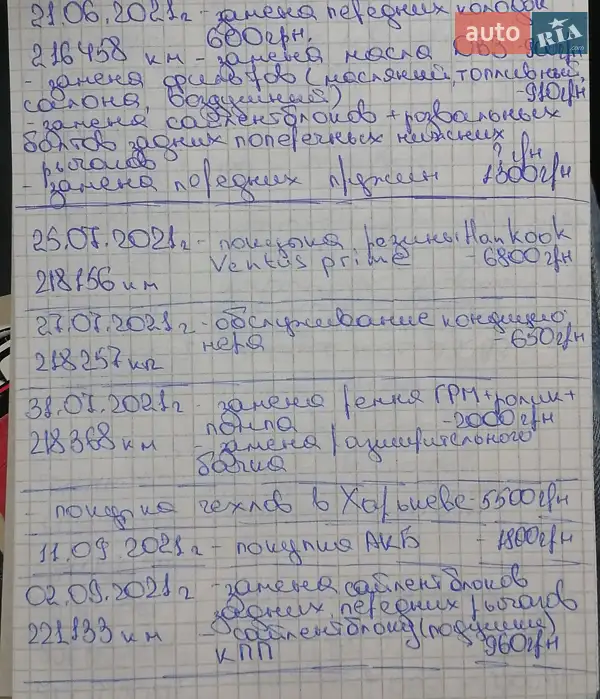 21.06.2021г - замена передних колодок
600грн.
auto RIA .com
216458 км - замена масла
- замена фильтров (масляный, топливный,
салона, воздушный) - 910грн
- замена сайлентблоков + розвальных
болтов задних поперечных нижних
рычагов ? грн
- замена передних пружин 1300грн
25.07.2021г - покупка резины Hankook
Ventus prime - 6800грн
218156 км
27.07.2021г - обслуживание кондицио
нера - 650грн
218257км
31.07.2021г - замена ремня ГРМ+ролик+
помпа - 2000грн
218368 км - замена расширительного
бачка
- покупка чехлов в Харькове - 5500грн
11.09.2021г - покупка АКБ - 1800грн
02.09.2021г - замена сайлентблоков
задних, передних рычагов
221133 км - сайлентблоки (подушки)
КПП 960грн